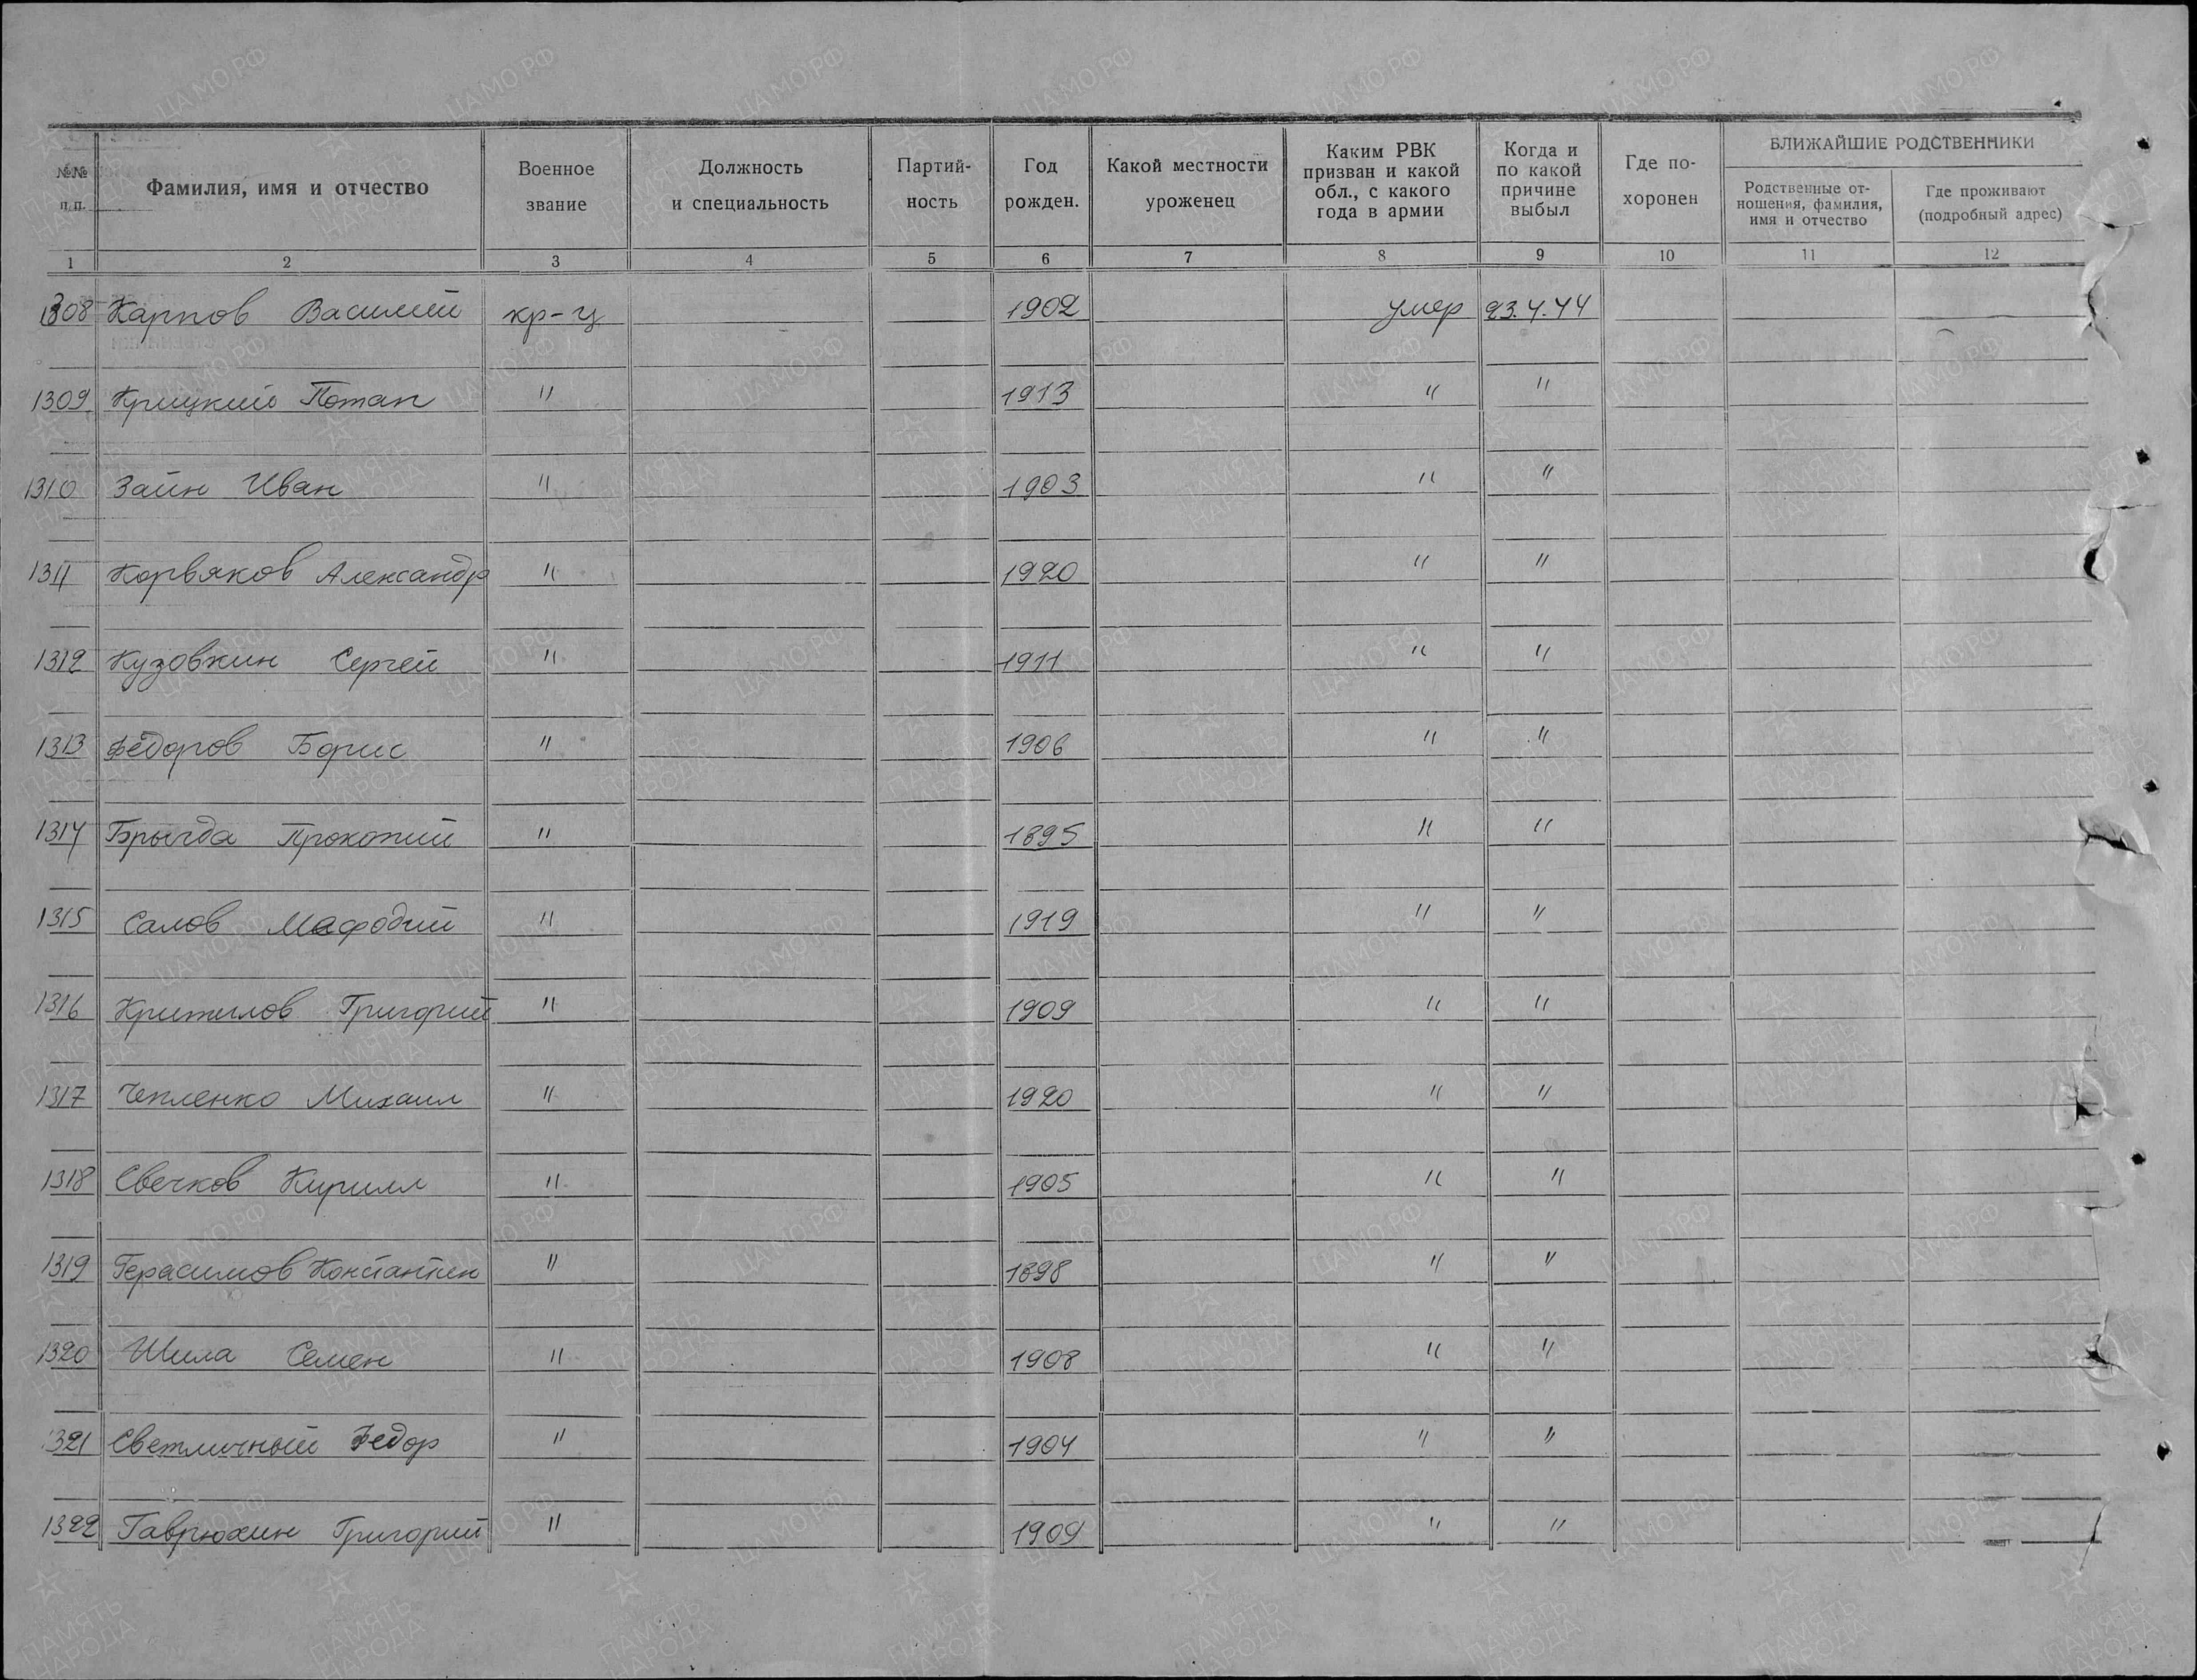 №№ п.п. | Фамилия, имя и отчество | Военное звание | Должность и специальность | Партийность | Год рожден. | Какой местности уроженец | Каким РВК призван и какой обл., с какого года в армии | Когда и по какой причине выбыл | Где похоронен | БЛИЖАЙШИЕ РОДСТВЕННИКИ
Родственные отношения, фамилия, имя и отчество | Где проживают (подробный адрес)
1 2 3 4 5 6 7 8 9 10 11 12
1308 Карпов Василий кр-ц 1902 умер 23.4.44
1309 Крицкий Потап " 1913 " "
1310 Заин Иван " 1903 " "
1311 Корвяков Александр " 1920 " "
1312 Кузовкин Сергей " 1911 " "
1313 Федоров Борис " 1906 " "
1314 Брычда Прокопий " 1895 " "
1315 Салов Мефодий " 1919 " "
1316 Григорий " 1909 " "
1317 Чепленко Михаил " 1920 " "
1318 Свечков Кирилл " 1905 " "
1319 Герасимов Константин " 1898 " "
1320 Шила Семен " 1908 " "
1321 Светличный Федор " 1904 " "
1322 Гаврюхин Григорий " 1909 " "
ЦАМО.РФ
ПАМЯТЬ НАРОДА